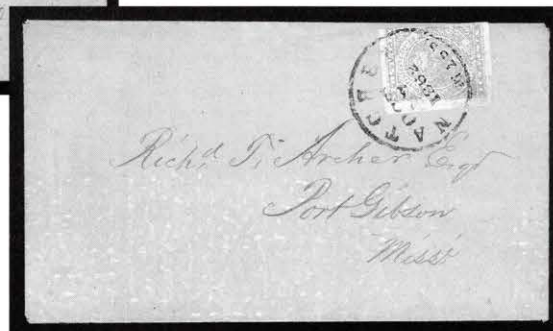 NATCHEZ Miss.
1862
Rich.d T. Archer Esqr
Port Gibson
Miss